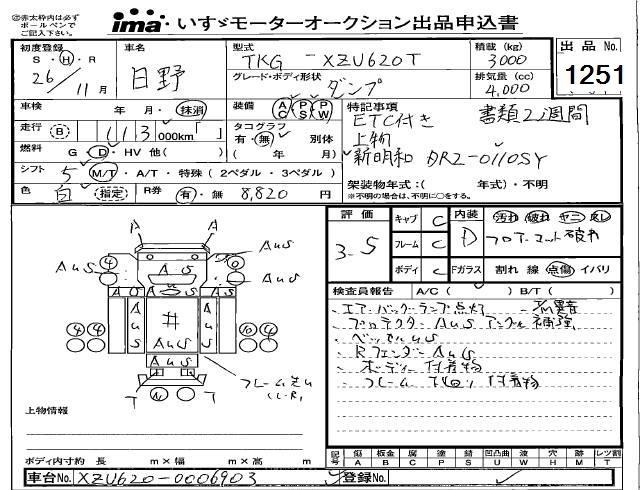 ②赤太枠内は必ず
ボールペンで
ご記入下さい。
ima いすゞモーターオークション出品申込書
初度登録 車名 型式 積載 (kg) 出品 No.
S・H・R 日野 TKG - XZU620T 3000 1251
26/11月 グレード・ボディ形状 ダンプ 排気量 (cc) 4,000
車検 年 月・抹消 装備 AC PS PW 特記事項 書類2週間
走行 B 113 000km タコグラフ ETC付き
有・無 別体 上物
燃料 G・D・HV 他( ) ( 年 月) 新明和 DR2-0110SY
シフト 5 M/T・A/T・特殊 (2ペダル・3ペダル) 架装物年式:( 年式)・不明
色 白 (指定) R券 有・無 8,820 円 ※不明の場合は、不明に○をする。
評価 キャブ C 内装 汚れ 破れ ヤニ 臭し
3.5 フレーム C D フロアーマット破れ
ボディ C Fガラス 割れ 線 点傷 イバリ
検査員報告 A/C ( ) B/T ( )
エアーバックランプ点灯 異音
プロテクタ AuS アングル補強
ベッセルuS
RフェンダーAuS
ボディー付着物
フレーム 下回り 付着物
A A
AuS AuS AuS
4 0
A U S A A S
4 4 AuS 井 AuS 4
AuS
AuS
フレーム
T T
上物情報
ボディ内寸約 長 m×幅 m×高 m
記号 傷 板金 腐 塗 錆 凹凸曲 波 穴 跡 レツ割
A B C P S U W H M T
車台No. XZU620-0006903 登録No.